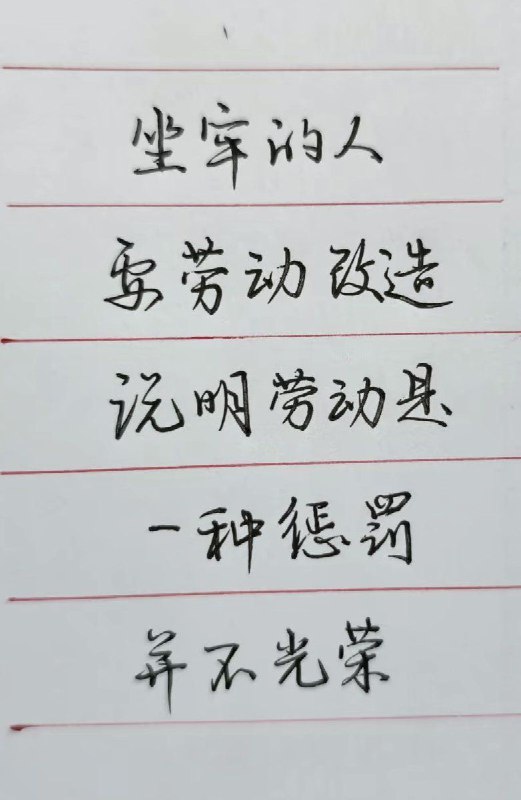 坐牢的人
要劳动改造
说明劳动是
一种惩罚
并不光荣